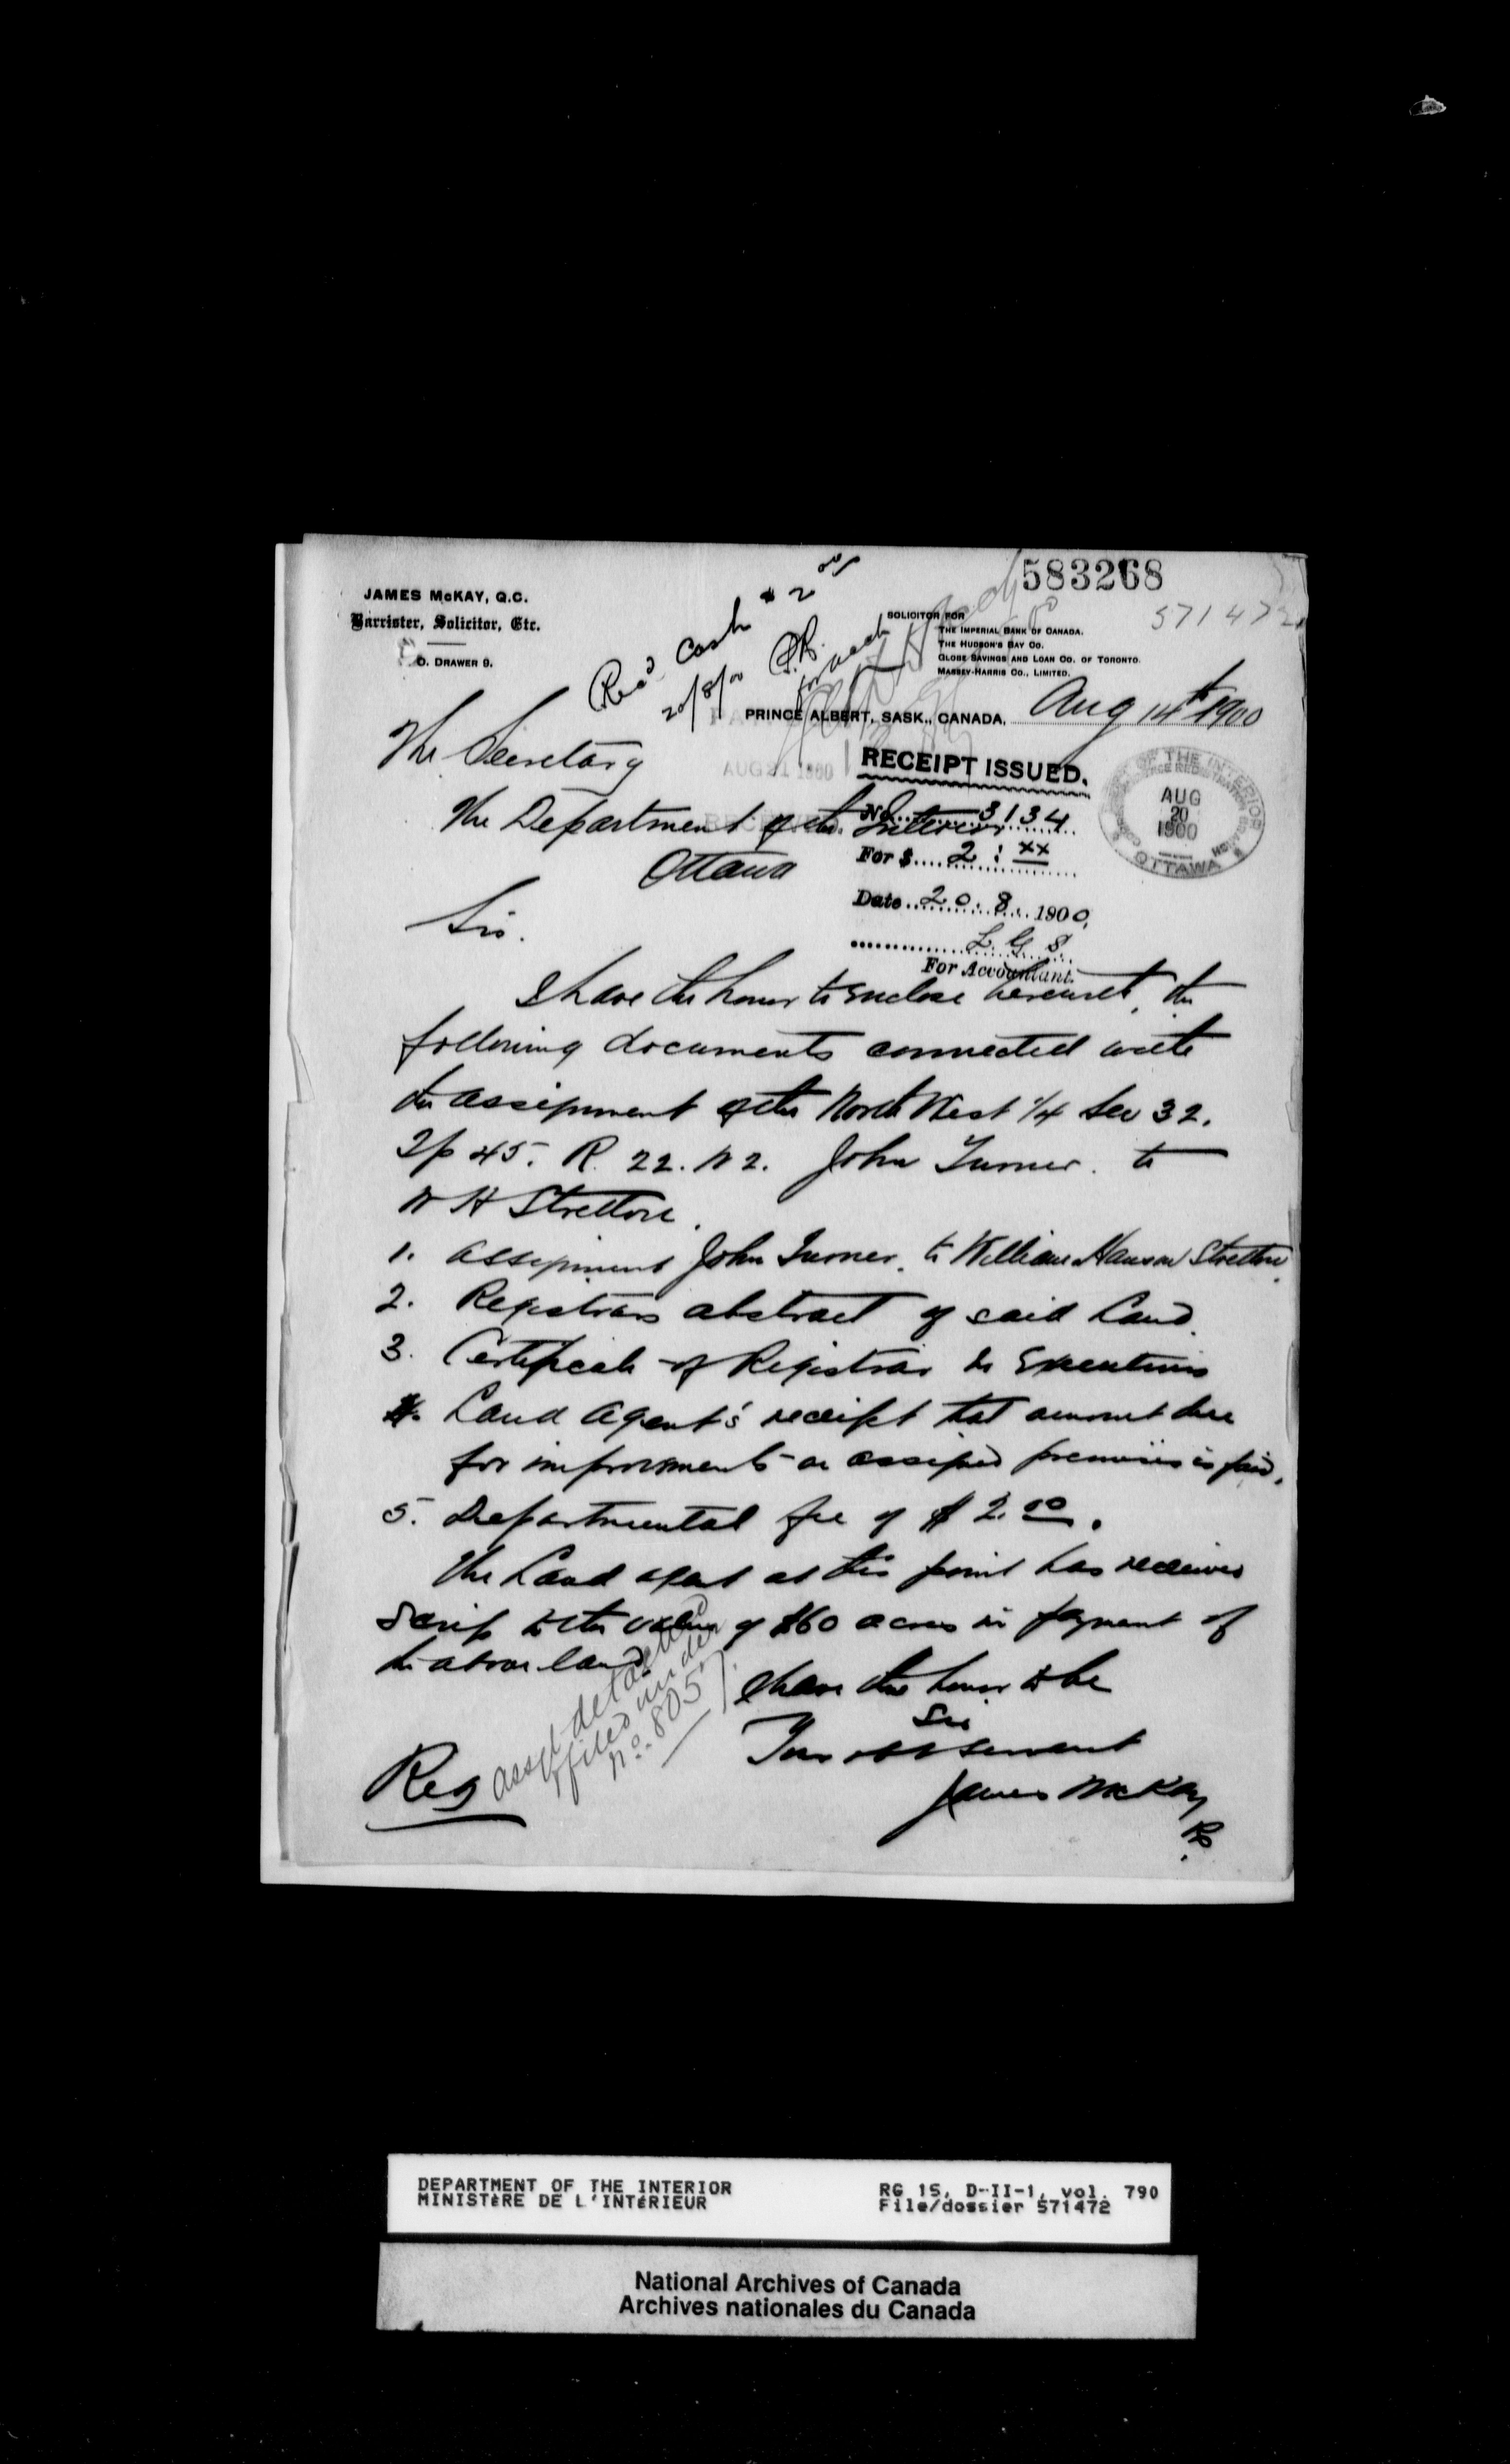 583268
571472
JAMES McKAY, Q.C.
Barrister, Solicitor, Etc.
O. DRAWER 9.
Rec'd Cash $2 00
20/8/00
SOLICITOR FOR
THE IMPERIAL BANK OF CANADA.
THE HUDSON'S BAY CO.
GLOBE SAVINGS AND LOAN CO. OF TORONTO.
MASSEY-HARRIS CO., LIMITED.
PRINCE ALBERT, SASK., CANADA, Aug 14th 1900
The Secretary
AUG 21 1900
RECEIPT ISSUED.
OF THE INTERIOR
AUG
20
1900
OTTAWA
The Department of the Interior
RECEIVED
No. 3134
Ottawa
For $ 2 : xx
Date 20. 8. 1900.
L. G. S.
For Accountant.
Sir.
I have the honor to enclose herewith, the
following documents connected with
the assignment of the North West 1/4 Sec 32.
Tp 45. R. 22. W 2. John Turner. to
W H Stretton.
1. Assignment John Turner. to William Hanson Stretton.
2. Registrars abstract of said Land.
3. Certificate of Registrar re Executions
4. Land Agent's receipt that amount due
for improvements on assigned premises is paid.
5. Departmental fee of $2.00.
The Land agent at this point has received
Scrip to the value of 160 acres in payment of
the above land.
I have the honor to be
Sir
Your obt servant
James McKay
Reg
assgt detached
& filed under
No. 8057.
DEPARTMENT OF THE INTERIOR
MINISTÈRE DE L'INTÉRIEUR
RG 15, D-II-1, vol. 790
File/dossier 571472
National Archives of Canada
Archives nationales du Canada